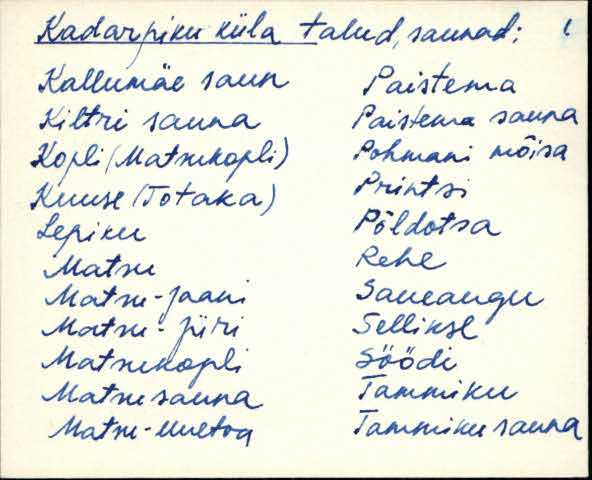 Kadarpiku küla talud, saunad:
Kallumäe saun
Kiltri sauna
Kopli (Matsukopli)
Kuuse (Totaka)
Lepiku
Matsu
Matsu-Jaani
Matsu-Jüri
Matsukopli
Matsu sauna
Matsu-Uuetoa
Paistema
Paistema sauna
Pohmani mõisa
Printsi
Põldotsa
Rehe
Saueaugu
Selliksl
Söödi
Tammiku
Tammiku sauna